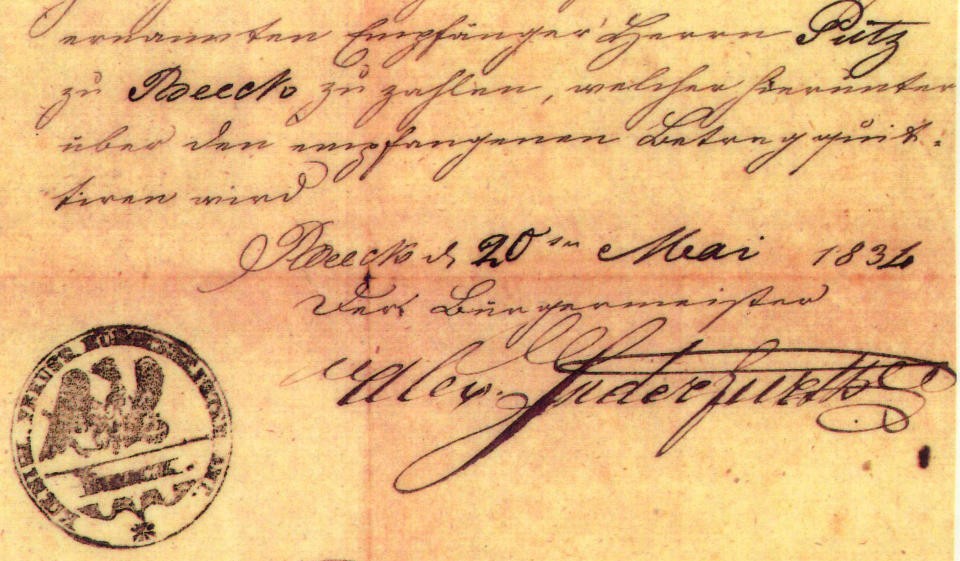 ernannten Empfänger Herrn Pütz
zu Beeck zu zahlen, welcher hierunter
über den empfangenen Betrag quit-
tiren wird
Beeck d 20ten Mai 1834
Der Bürgermeister
Alex. Inderfurth
KOENIGL. PREUSS. BURGERMEISTER AMT.
BEECK.